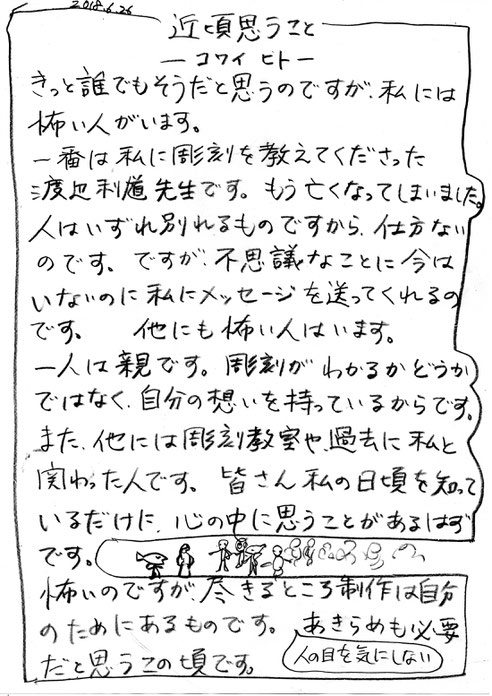 2018.6.26
近頃思うこと
― コワイ ヒト ―
きっと誰でもそうだと思うのですが、私には
怖い人がいます。
一番は私に彫刻を教えてくださった
渡辺利馗先生です。もう亡くなってしまいました。
人はいずれ別れるものですから、仕方ない
のです。ですが、不思議なことに今は
いないのに私にメッセージを送ってくれるの
です。 他にも怖い人はいます。
一人は親です。彫刻がわかるかどうか
ではなく、自分の想いを持っているからです。
また、他には彫刻教室や、過去に私と
関わった人です。皆さん私の日頃を知って
いるだけに、心の中に思うことがあるはず
です。
怖いのですが、尽きるところ制作は自分
のためにあるものです。あきらめも必要
だと思うこの頃です。
人の目を気にしない